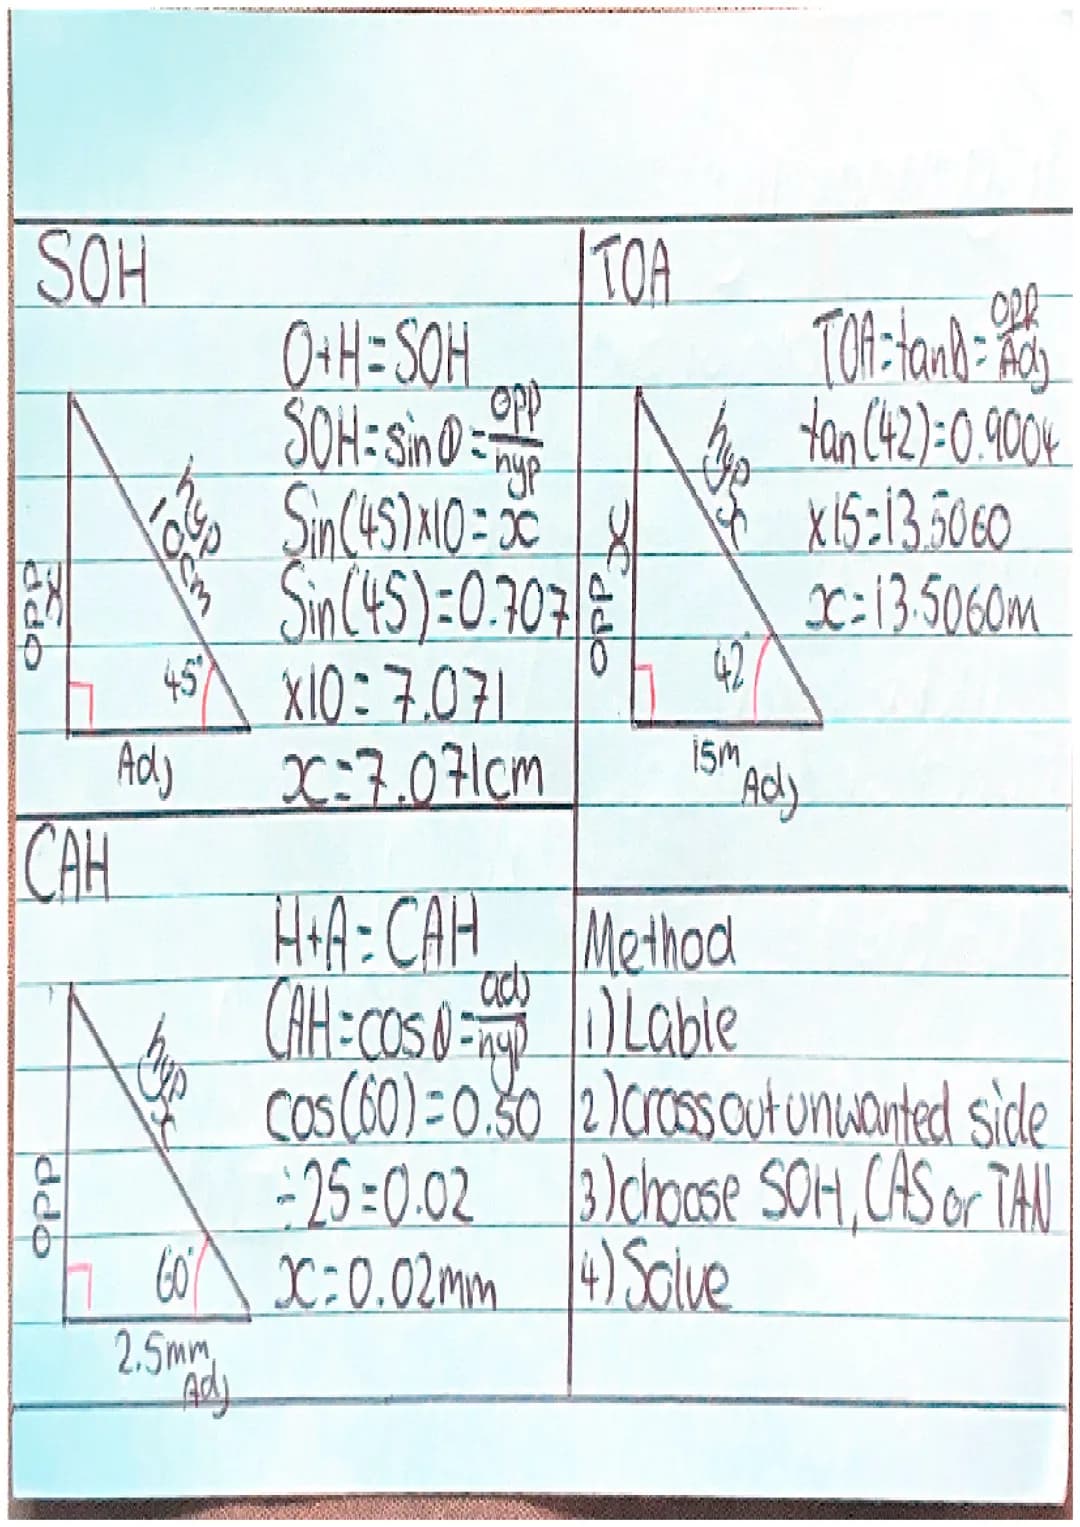 SOH
O+H=SOH
SOH=sinθ=opp/hyp
Sin(45)×10=x
Sin(45)=0.707
×10=7.071
x=7.071cm
opp
x
hyp
10cm
45°
Adj
TOA
TOA=tanθ=opp/Adj
tan(42)=0.9004
×15=13.5060
x=13.5060m
opp
x
hyp
42°
15m
Adj
CAH
H+A=CAH
CAH=cosθ=adj/hyp
cos(60)=0.50
÷25=0.02
x=0.02mm
opp
hyp
x
60°
2.5mm
Adj
Method
1)Lable
2)cross out unwanted side
3)choose SOH, CAS or TAN
4)Solve